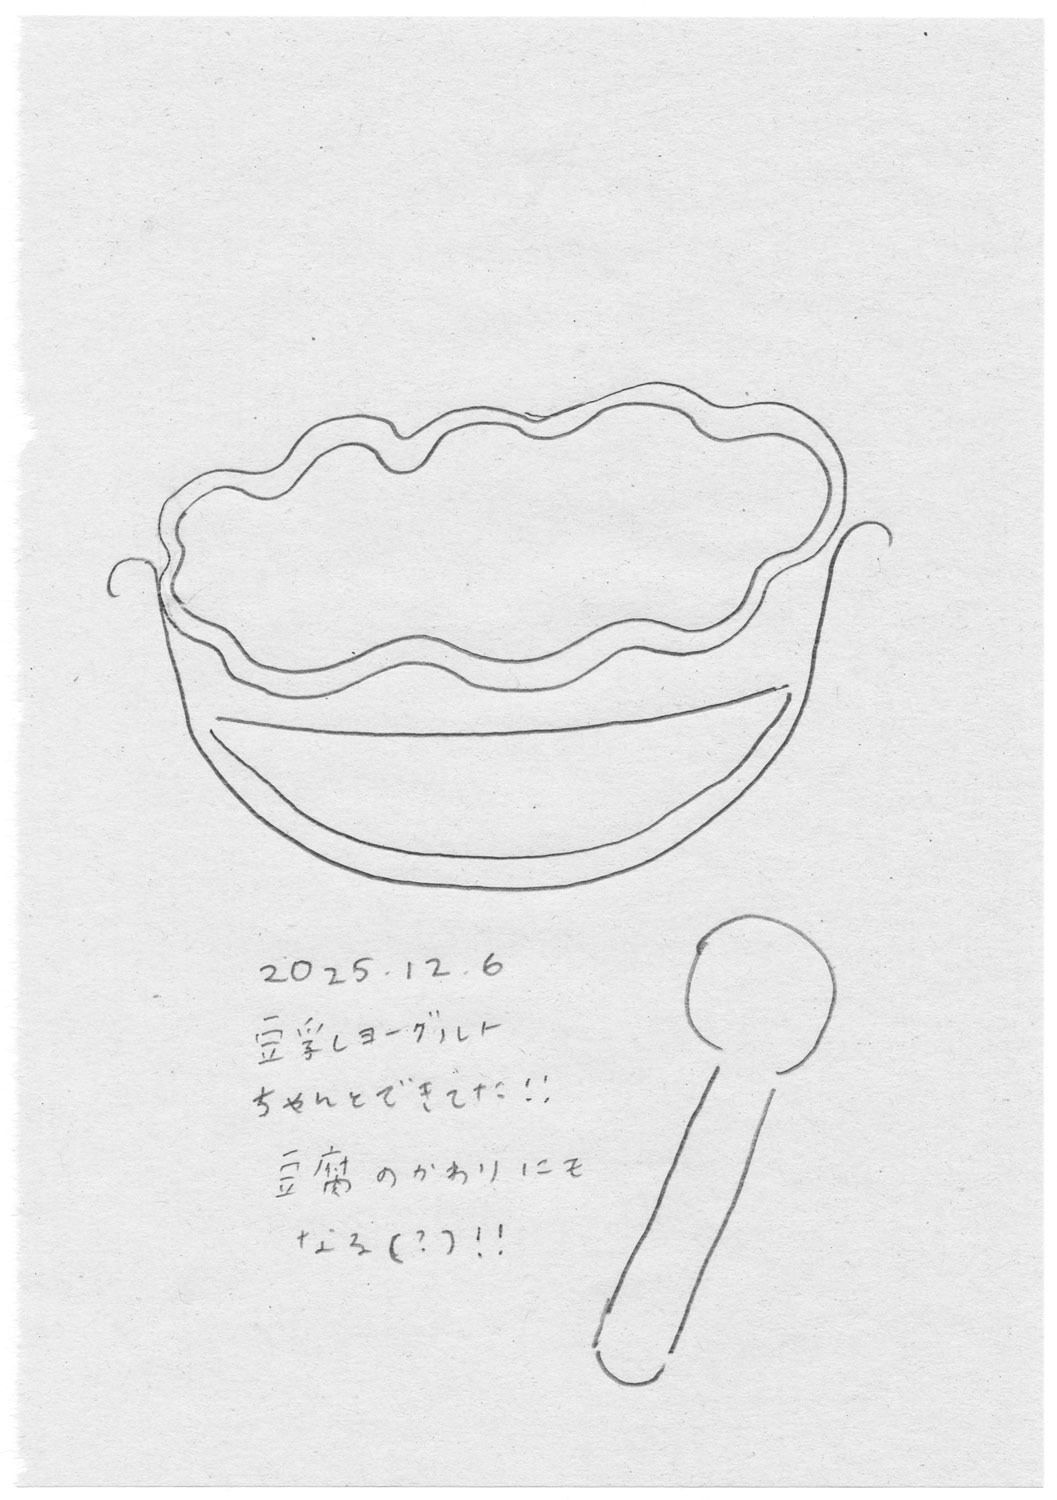 2025.12.6
豆乳ヨーグルト
ちゃんとできてた!!
豆腐のかわりにも
なる(?)!!